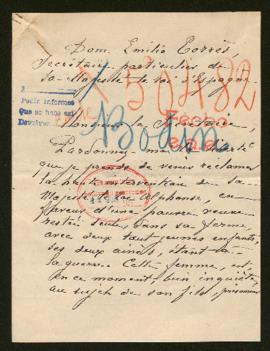 Dom. Emilio Torrès,
Secrétaire particulier de
sa Majesté le roi d'Espagne
X 59482
Pedir informes
Que no haya est
Bodin
Monsieur le Secrétaire,
Pardonnez moi la liberté
que je prends de venir réclamer
la haute intervention de Sa
Majesté le roi Alphonse, en
faveur d'une pauvre veuve
restée seule dans sa ferme,
avec deux tout jeunes enfants,
ses deux ainés, étant à
la guerre. Cette femme, est
en ce moment, bien inquiète,
au sujet de son fils, prisonnier